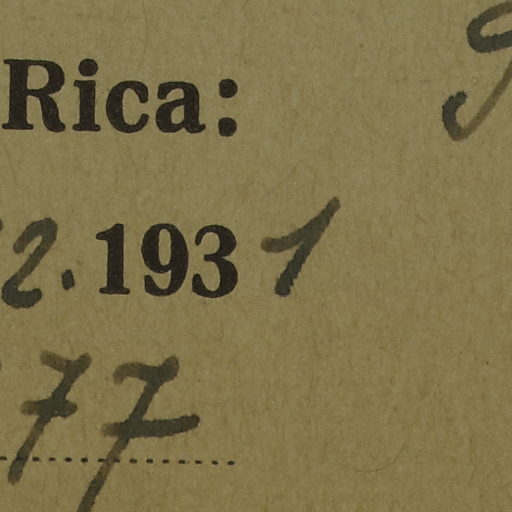 Rica:
2.1931
77